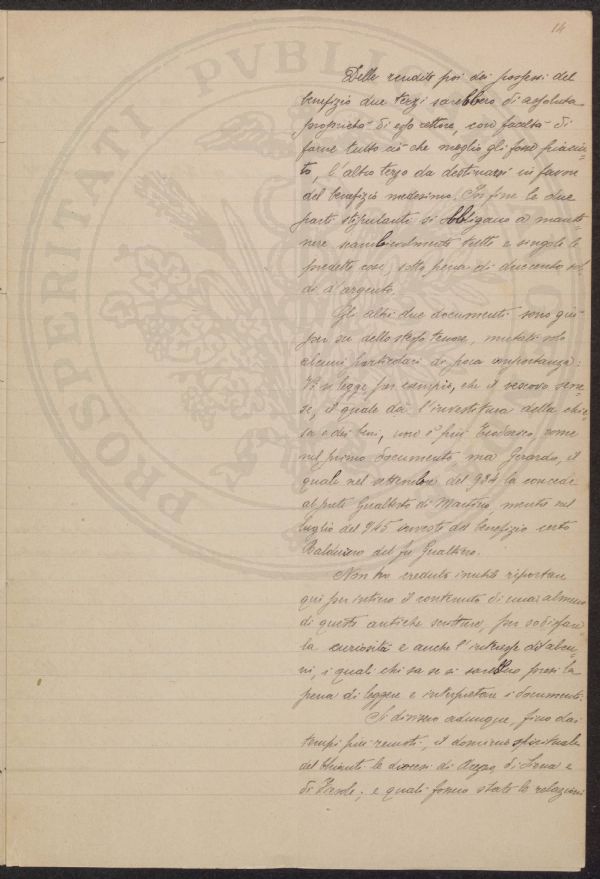 14
Delle rendite poi dei possessi del
benefizio due terzi sarebbero di assoluta
proprietà di esso rettore, con facoltà di
farne tutto ciò che meglio gli fosse piaciu=
to, l'altro terzo da destinarsi in favore
del benefizio medesimo. Infine le due
parti stipulanti si obbligano a mante=
nere scambievolmente tutte e singole le
predette cose, sotto pena di duecento sol=
di d'argento.
Gli altri due documenti sono giù
per su dello stesso tenore, mutati solo
alcuni particolari di poca importanza:
Vi si legge per esempio, che il vescovo sene=
se, il quale dà l'investitura della chie=
sa e dei beni, non è più Teodosco, come
nel primo documento ma Gerardo, il
quale nel settembre del 984 la concede
al prete Gualberto di Martino, mentre nel
luglio del 945 investe del benefizio certo
Balduino del fu Gualtiero.
Non ho creduto inutile riportare
qui per intiero il contenuto di una almeno
di queste antiche scritture, per sodisfare
la curiosità e anche l'interesse di alcu=
ni, i quali chi sa se si sarebbero presi la
pena di leggere e interpretare i documenti.
Si divisero adunque, fino dai
tempi più remoti, il dominio spirituale
del Chianti le diocesi di Arezzo, di Siena e
di Fiesole; e quali fossero state le relazioni
PROSPERITATI PVBLICAE